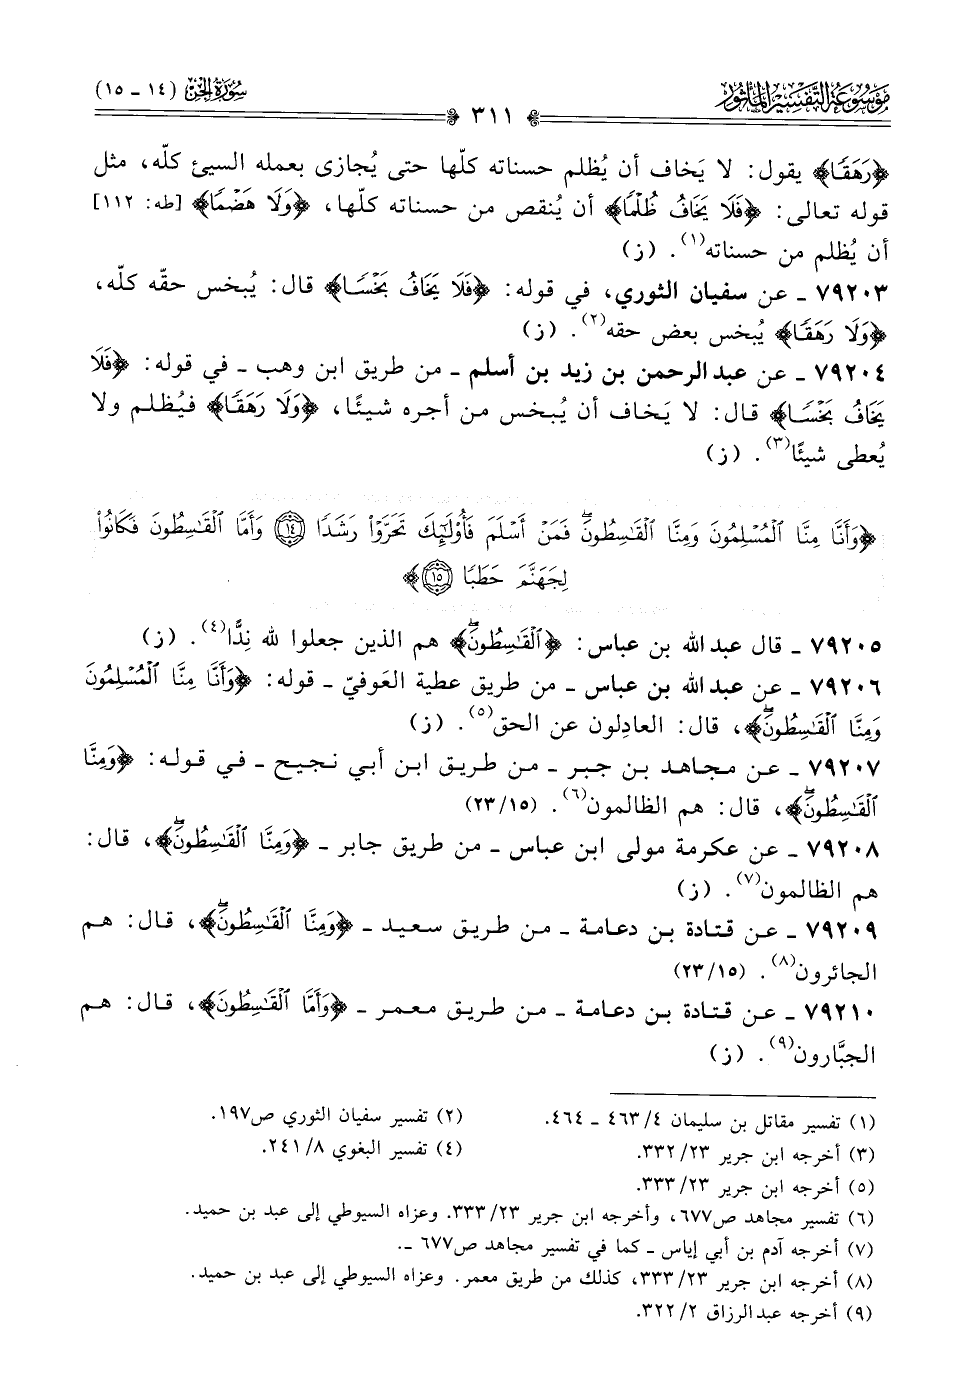 موسوعة التفسير المأثور
سورة الجن (١٤ - ١٥)
٣١١
﴿رَهَقًا﴾ يقول: لا يَخاف أن يُظلم حسناته كلّها حتى يُجازى بعمله السيئ كلّه، مثل
قوله تعالى: ﴿فَلَا يَخَافُ ظُلْمًا﴾ أن يُنقص من حسناته كلّها، ﴿وَلَا هَضْمًا﴾ [طه: ١١٢]
أن يُظلم من حسناته(١). (ز)
٧٩٢٠٣ ـ عن سفيان الثوري، في قوله: ﴿فَلَا يَخَافُ بَخْسًا﴾ قال: يُبخس حقّه كله،
﴿وَلَا رَهَقًا﴾ يُبخس بعض حقه(٢). (ز)
٧٩٢٠٤ ـ عن عبد الرحمن بن زيد بن أسلم ـ من طريق ابن وهب ـ في قوله: ﴿فَلَا
يَخَافُ بَخْسًا﴾ قال: لا يَخاف أن يُبخس من أجره شيئًا، ﴿وَلَا رَهَقًا﴾ فيُظلم ولا
يُعطى شيئًا(٣). (ز)
﴿وَأَنَّا مِنَّا ٱلْمُسْلِمُونَ وَمِنَّا ٱلْقَـٰسِطُونَۖ فَمَنْ أَسْلَمَ فَأُوْلَـٰٓئِكَ تَحَرَّوْاْ رَشَدًا ١٤ وَأَمَّا ٱلْقَـٰسِطُونَ فَكَانُواْ
لِجَهَنَّمَ حَطَبًا ١٥﴾
٧٩٢٠٥ ـ قال عبد الله بن عباس: ﴿ٱلْقَـٰسِطُونَۖ﴾ هم الذين جعلوا لله نِدًّا(٤). (ز)
٧٩٢٠٦ ـ عن عبد الله بن عباس ـ من طريق عطية العَوفيّ ـ قوله: ﴿وَأَنَّا مِنَّا ٱلْمُسْلِمُونَ
وَمِنَّا ٱلْقَـٰسِطُونَۖ﴾، قال: العادِلون عن الحق(٥). (ز)
٧٩٢٠٧ ـ عن مجاهد بن جبر ـ من طريق ابن أبي نجيح ـ في قوله: ﴿وَمِنَّا
ٱلْقَـٰسِطُونَۖ﴾، قال: هم الظالمون(٦). (١٥/ ٢٣)
٧٩٢٠٨ ـ عن عكرمة مولى ابن عباس ـ من طريق جابر ـ ﴿وَمِنَّا ٱلْقَـٰسِطُونَۖ﴾، قال:
هم الظالمون(٧). (ز)
٧٩٢٠٩ ـ عن قتادة بن دعامة ـ من طريق سعيد ـ ﴿وَمِنَّا ٱلْقَـٰسِطُونَۖ﴾، قال: هم
الجائرون(٨). (١٥/ ٢٣)
٧٩٢١٠ ـ عن قتادة بن دعامة ـ من طريق معمر ـ ﴿وَأَمَّا ٱلْقَـٰسِطُونَ﴾، قال: هم
الجبَّارون(٩). (ز)
(١) تفسير مقاتل بن سليمان ٤/ ٤٦٣ ـ ٤٦٤.
(٢) تفسير سفيان الثوري ص١٩٧.
(٣) أخرجه ابن جرير ٢٣/ ٣٣٢.
(٤) تفسير البغوي ٨/ ٢٤١.
(٥) أخرجه ابن جرير ٢٣/ ٣٣٣.
(٦) تفسير مجاهد ص٦٧٧، وأخرجه ابن جرير ٢٣/ ٣٣٣. وعزاه السيوطي إلى عبد بن حميد.
(٧) أخرجه آدم بن أبي إياس ـ كما في تفسير مجاهد ص٦٧٧ ـ.
(٨) أخرجه ابن جرير ٢٣/ ٣٣٣، كذلك من طريق معمر. وعزاه السيوطي إلى عبد بن حميد.
(٩) أخرجه عبد الرزاق ٢/ ٣٢٢.